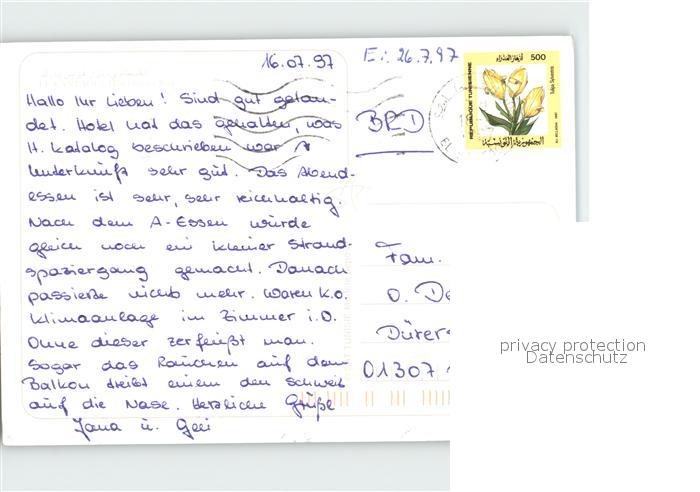 16.07.97
Ei: 26.7.97
Hallo Ihr Lieben! Sind gut gelan-
det. Hotel hat das gehalten, was
lt. Katalog beschrieben war
Unterkunft sehr gut. Das Abend-
essen ist sehr, sehr reichhaltig.
Nach dem A-Essen wurde
gleich noch ein kleiner Strand-
spaziergang gemacht. Danach
passierte nichts mehr. Waren k.o.
Klimaanlage im Zimmer i.O.
Ohne dieser zerfließt man.
Sogar das Rauchen auf dem
Balkon treibt einem den Schweiß
auf die Nase. Herzliche Grüße
Jana u.
BRD
Fam.
O. De
Dürers
01307
REPUBLIQUE TUNISIENNE
500
Tulipa Sylvestris
الجمهورية التونسية
privacy protection
Datenschutz